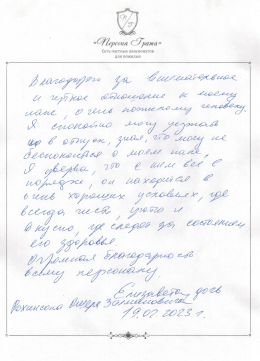 «Первая Грата»
Сеть частных пансионатов
для пожилых
Благодарю за внимательное
и чуткое отношение к моему
папе, очень пожилому человеку.
Я спокойно могу уезжать
в отпуск, зная, что могу не
беспокоиться о моем папе.
Я уверена, что с ним все в
порядке, он находится в
очень хороших условиях, где
всегда чисто, уютно и
вкусно, где следят за состоянием
его здоровья.
Огромная благодарность
всему персоналу.
Елизавета, дочь
19.02.2023 г.